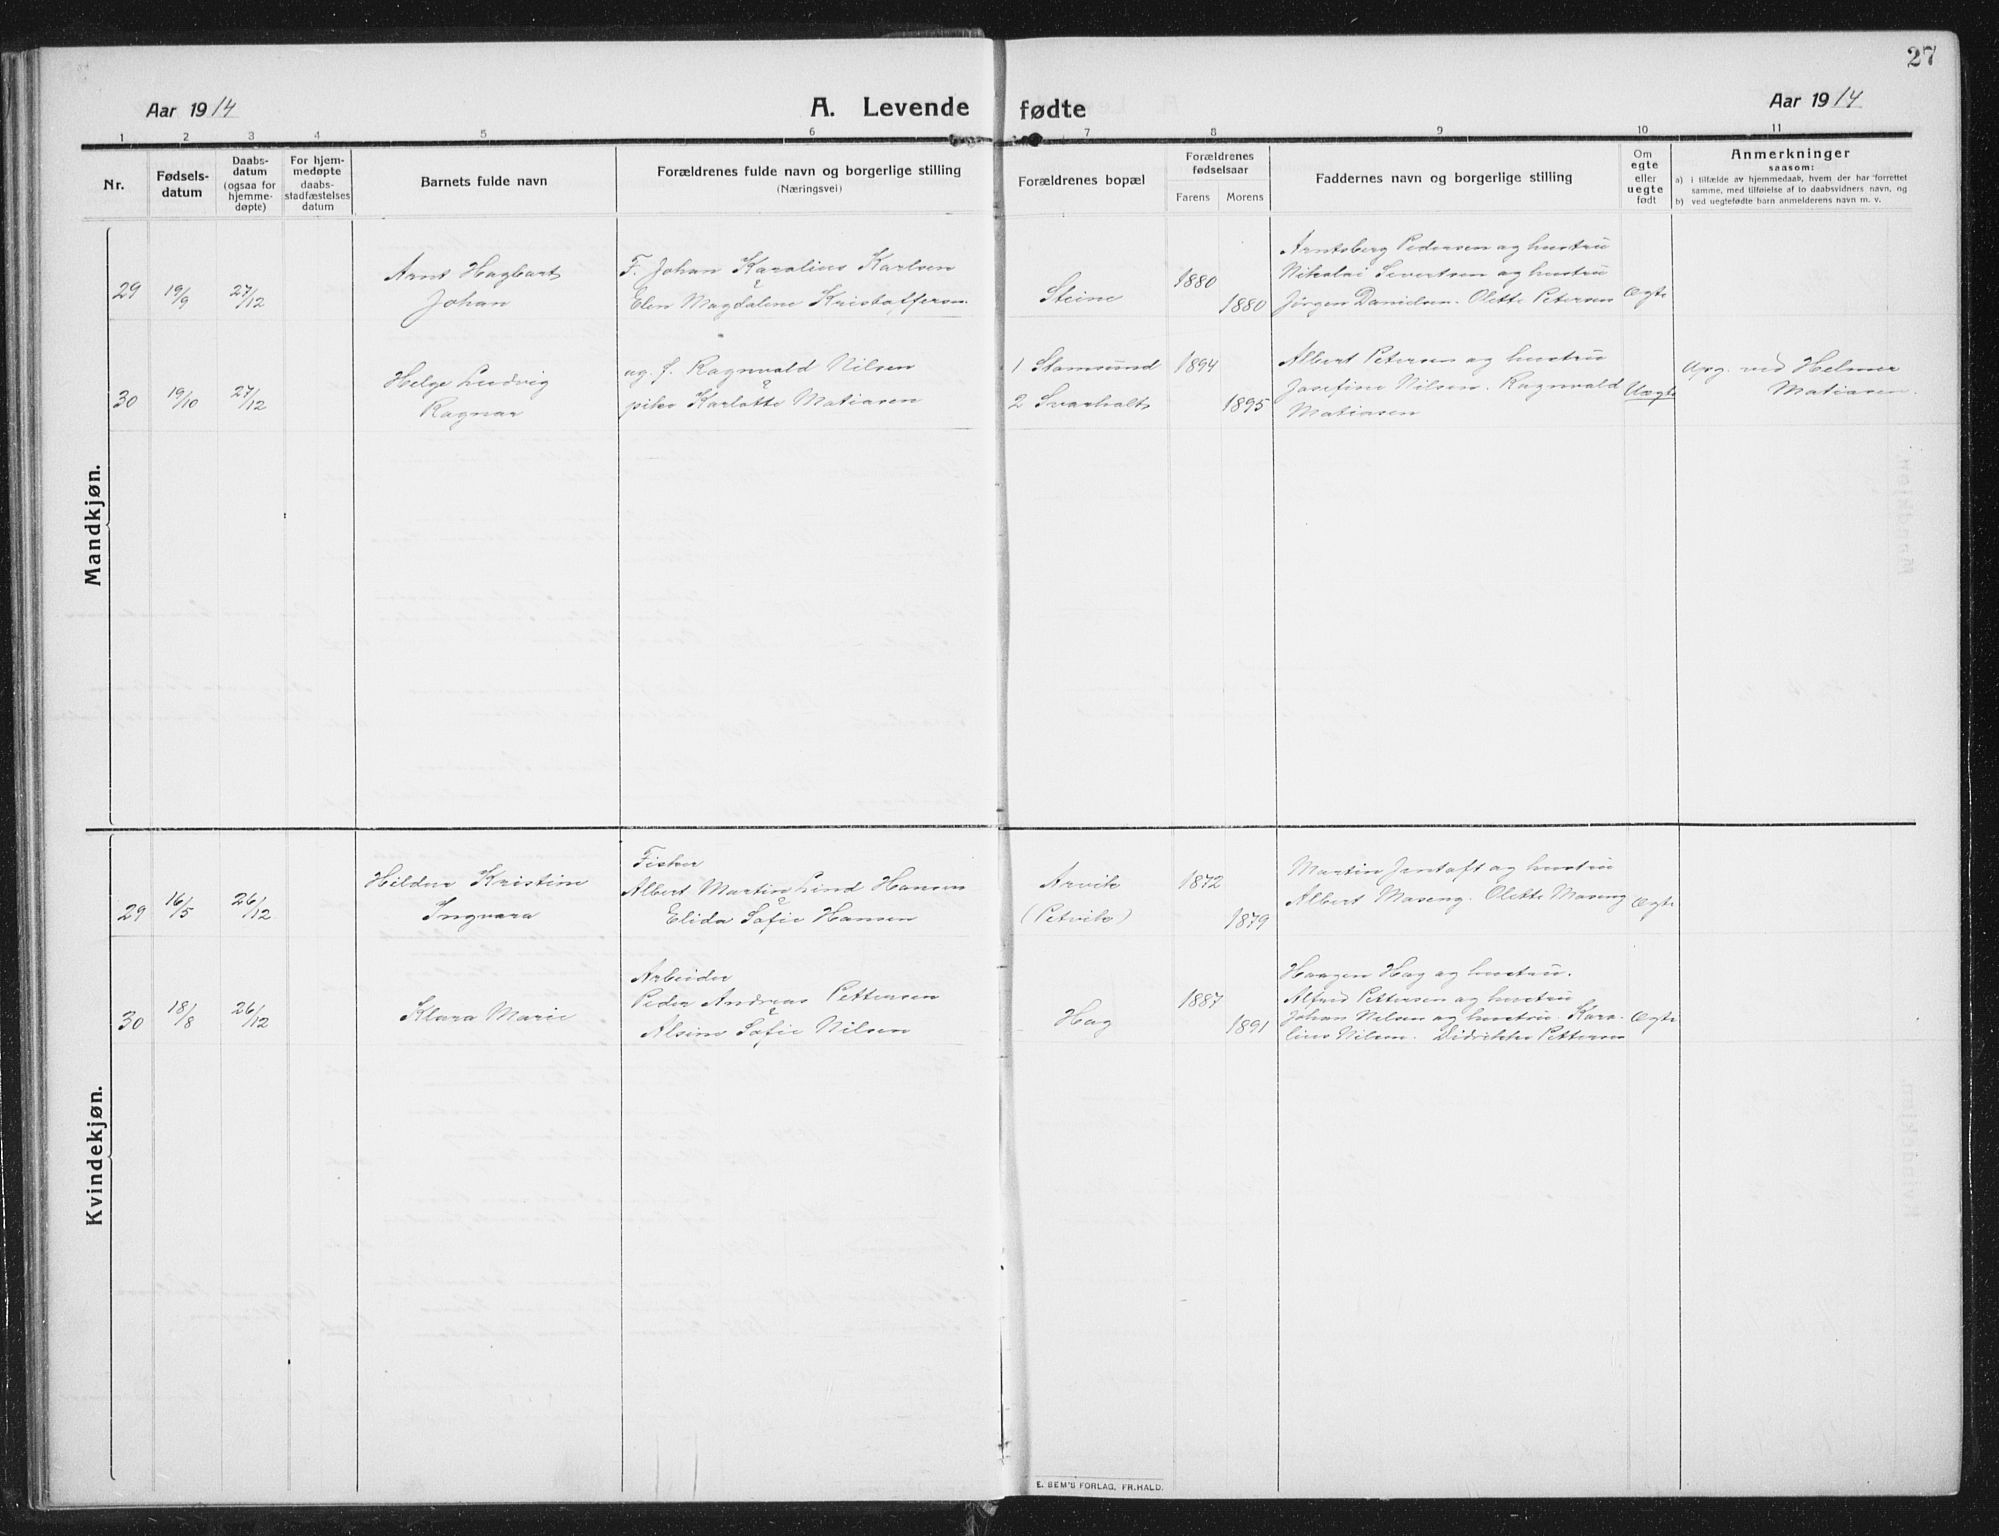 27
Aar 1914
A. Levende fødte
Aar 1914
1 2 3 4 5 6 7 8 9 10 11
Nr.
Fødsels-
datum
Daabs-
datum
(ogsaa for
hjemme-
døpte)
For hjem-
medøpte
daabs-
stadfæstelses
datum
Barnets fulde navn
Forældrenes fulde navn og borgerlige stilling
(Næringsvei)
Forældrenes bopæl
Forældrenes
fødselsaar
Farens Morens
Faddernes navn og borgerlige stilling
Om
egte
eller
uegte
født
Anmerkninger
saasom:
a) i tilfælde av hjemmedaab, hvem der har forrettet
samme, med tilføielse af to daabsvidners navn, og
b) ved uegtefødte barn anmelderens navn m. v.
Mandkjøn.
29 19/9 27/12
Arnt Hagbart
Johan
F. Johan Karolius Karlsen
&
Elen Magdalene Kristoffersen
Steine
1880
1880
Arntsberg Pedersen og hustru
Nikolai Sivertsen og hustru
Jörgen Danielsen. Olette Petersen
Ægte
30 19/10 27/12
Helge Ludvig
Ragnar
ug. f. Ragnvald Nilsen
&
pike Karlotte Matiasen
1 Stamsund
2 Svarholt
1894
1895
Albert Petersen og hustru
Josefine Nilsen. Ragnvald
Matiasen
Uægte
Opg. ved Helmer
Matiasen.
Kvindekjøn.
29 16/5 26/12
Hildur Kristine
Ingvara
Fisker
Albert Martin Lind Hansen
&
Elida Sofie Hansen
Arvik
(Petvik)
1872
1879
Martin Jentoft og hustru
Albert Maseng. Olette Maseng
Ægte
30 18/8 26/12
Klara Marie
Arbeider
Peder Andreas Pettersen
&
Alsine Sofie Nilsen
Hag
1887
1891
Haagen Hag og hustru.
Alfred Pettersen og hustru
Johan Nilsen og hustru. Karo-
lius Nilsen. Didrikke Pettersen
Ægte
E. SEM'S FORLAG, FR.HALD.